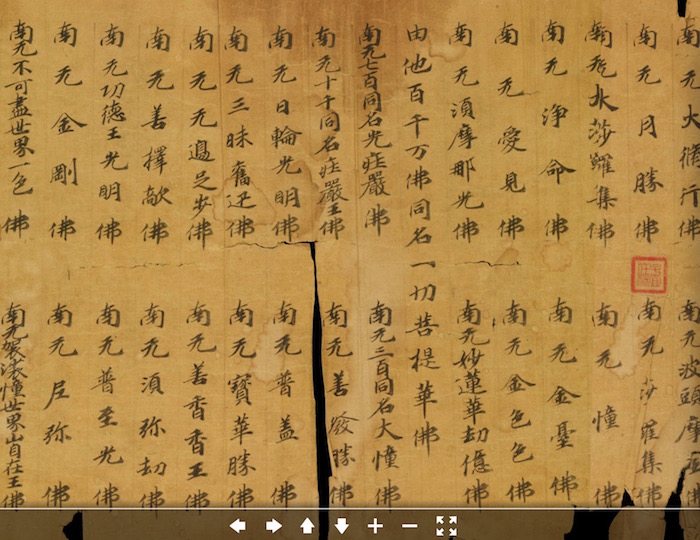 南无大脩行佛 南无波頭摩王佛
南无月勝佛 南无莎羅集佛
南无水莎羅集佛 南无憧佛
南无浄命佛 南无金佛
南无愛見佛 南无金色色佛
南无須摩那光佛 南无妙蓮華劫億佛
由他百千万佛同名一切菩提華佛
南无七百同名光症嚴佛 南无三百同名大憧佛
南无十千同名症嚴王佛 南无善發勝佛
南无日輪光明佛 南无普蓋佛
南无三昧奮迅佛 南无寶華勝佛
南无无邊足步佛 南无善香香王佛
南无善擇敵佛 南无須弥劫佛
南无功德王光明佛 南无普至光佛
南无金剛佛 南无尼弥佛
南无不可盡世界一色佛 南无袈裟憧世界山自在王佛